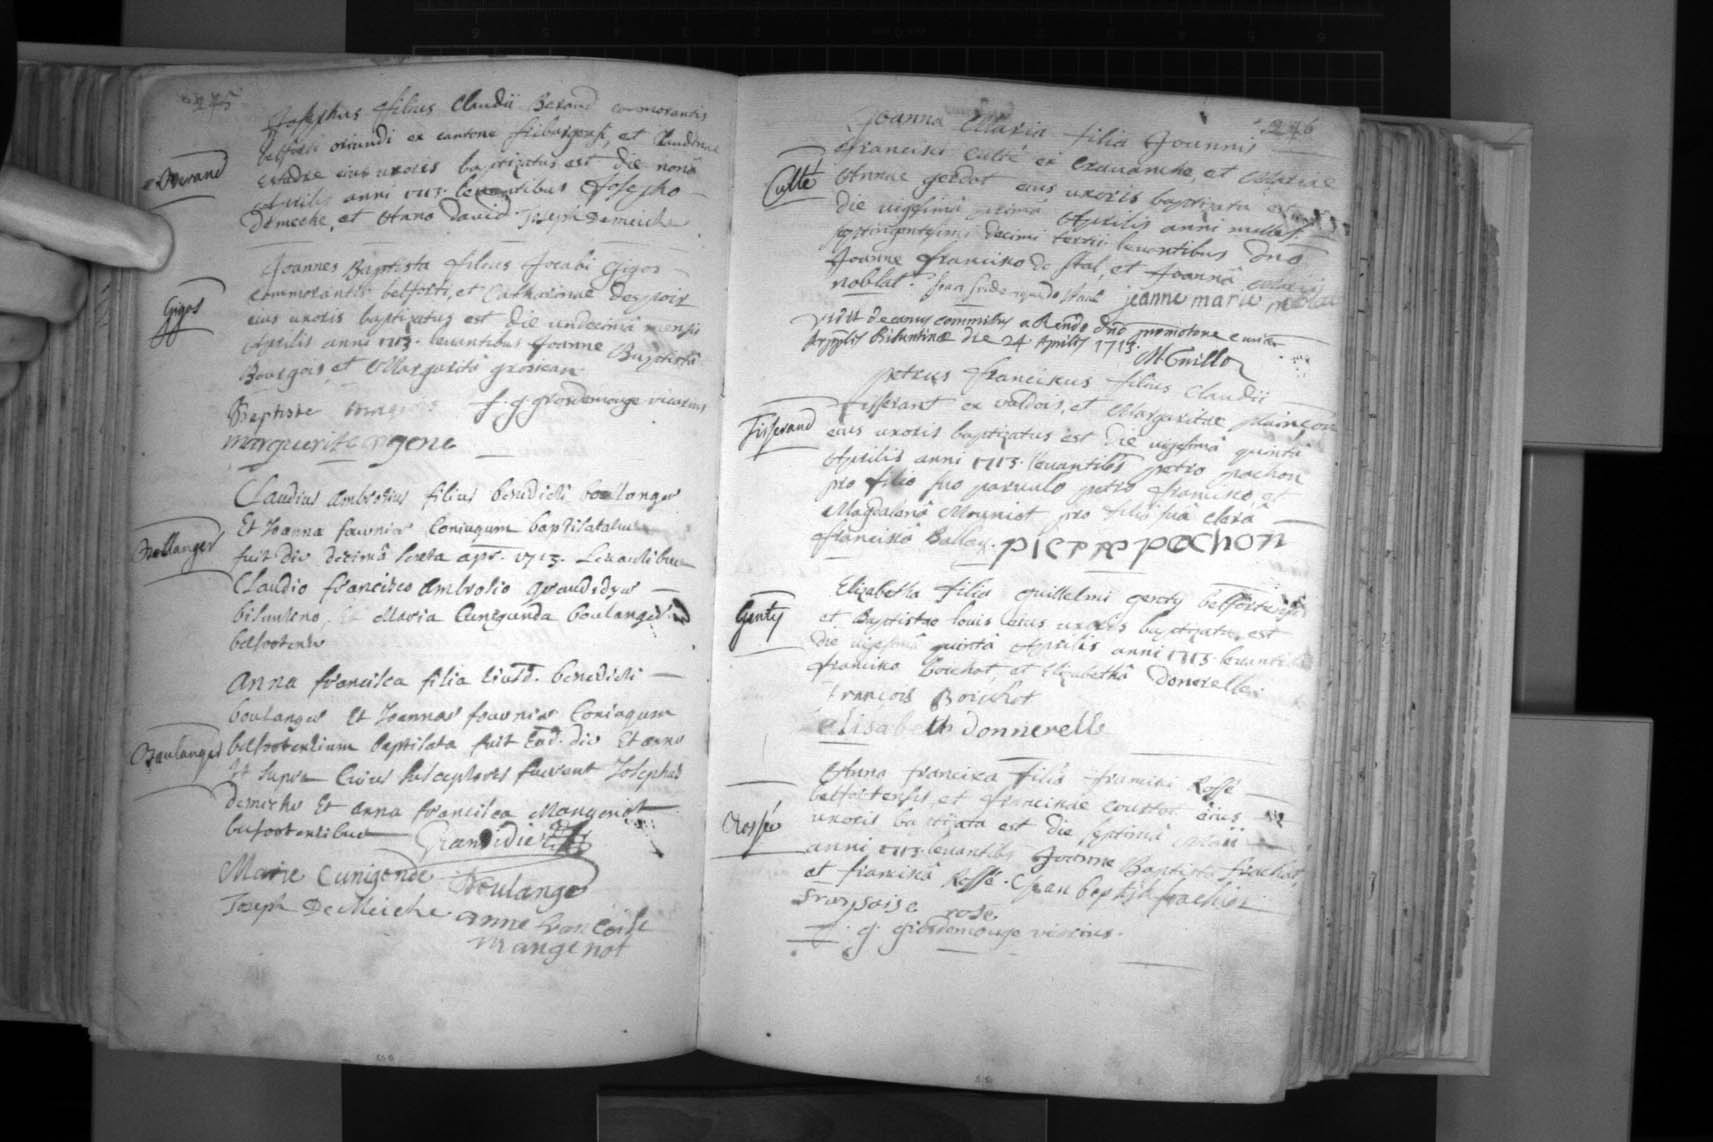 245
Josephus filius Claudii Berand commorantis
belforti oriundi ex cantone friburgensi, et Claudinae
eius uxoris baptizatus est die nonâ
Aprilis anni 1713. levantibus Josepho
Demeche, et Anna David. Joseph Demeiche
Gigos
Joannes Baptista filius Jacobi Gigos
commorantis belforti, et Catharinae Despoix
eius uxoris baptizatus est die undecimâ mensis
Aprilis anni 1713. levantibus Joanne Baptistâ
Bourgois, et Margaritâ grosjean
Baptiste f. g. grosdemouge vicarius
marguerite
Claudius Ambrosius filius benedicti boulanger
Boullanger
Et Joanna fournier Coniugum baptisatus
fuit die decimâ sexta apr. 1713. Levantibus
Claudio francisco Ambrosio Grandidier
bisuntino, Et Maria Cunegunda boulanger
belfortensi
Anna francisca filia eiusd. benedicti
boulanger Et Joannae fournier Coniugum
Boulanger
belfortensium baptisata fuit Ead. die Et anno
Ut supra Cuius susceptores fuerunt Josephus
demeche Et anna francisca Mangenot
belfortensibus Grandidier
Marie Cunigonde Boulange
Joseph De Meiche anne francoise
mangenot
246
Joanna Maria filia Joannis
Francisci Cutté ex Cravanche, et Mariae
Cutté
Annae gerdot eius uxoris baptizata est
die vigesimâ primâ Aprilis anni millesi
septingentesimi decimi tertii levantibus Dno
Joanne francisco de Stal, et Joannâ Mariâ
noblat. jeanne marie noblat
vidit decanus commissus a Rendo dno promotore
Bisuntinae die 24 aprilis 1713.
M. Guillo
petrus franciscus filius Claudii
Tisserand
Tisserant ex valdois, et Margaritae plainçon
eius uxoris baptizatus est die vigesimâ quintâ
Aprilis anni 1713. levantibs petro pochon
pro filio suo parvulo petro francisco, et
Magdalenâ Mouniot pro filiâ suâ clarâ
franciscâ Ballay. pierre pochon
Elizabetha filia guillelmi genty belfortensis
Genty
et Baptistae louis eius uxoris baptizata est
die vigesimâ quintâ Aprilis anni 1713. levantibs
francisco boichot, et Elizabethâ Donerelle
François Boichot
elisabeth donnerelle
Anna francisca filia francisci Rossé
belfortensis, et franciscae couttot eius
Rossé
uxoris baptizata est die septimâ Maii
anni 1713. levantibs Joanne Baptista frachot,
et franciscâ Rossé. Jean beptiste frachot
fransoise rose
f. g. grosdemouge vicarius.